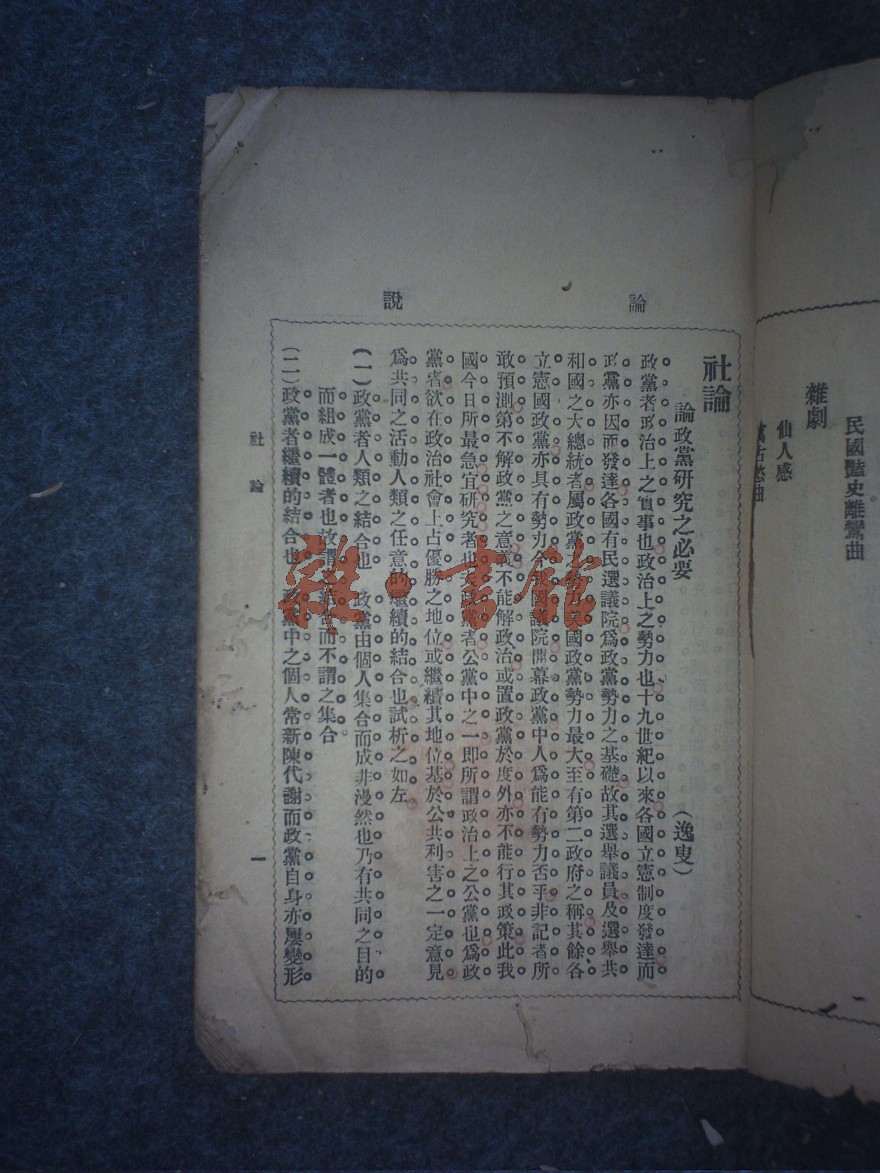 雜劇
民國豔史離鸞曲
仙人感
論說
社論
論政黨研究之必要
(逸叟)
政黨者政治上之實事也政治上之勢力也十九世紀以來各國立憲制度發達而
政黨亦因而發達各國有民選議院爲政黨勢力之基礎故其選舉議員及選舉共
和國之大總統者屬政黨 美國政黨勢力最大至有第二政府之稱其餘各
立憲國政黨亦具有勢力今 國議院開幕政黨中人爲能有勢力否乎非記者所
敢預測第不解政黨之意義不能解政治或置政黨於度外亦不能行其政策此我
國今日所最急宜研究者也夫政黨者公黨中之一即所謂政治上之公黨也爲政
黨者欲在政治社會上占優勝之地位或繼續其地位基於公共利害之一定意見
爲共同之活動人類之任意的繼續的結合也試析之如左
(一)政黨者人類之結合也 政黨由個人集合而成非漫然也乃有共同之目的
而組成一體者也故謂之結合而不謂之集合
(二)政黨者繼續的結合也 政黨中之個人常新陳代謝而政黨自身亦屢變形
社論
一
雜·書館